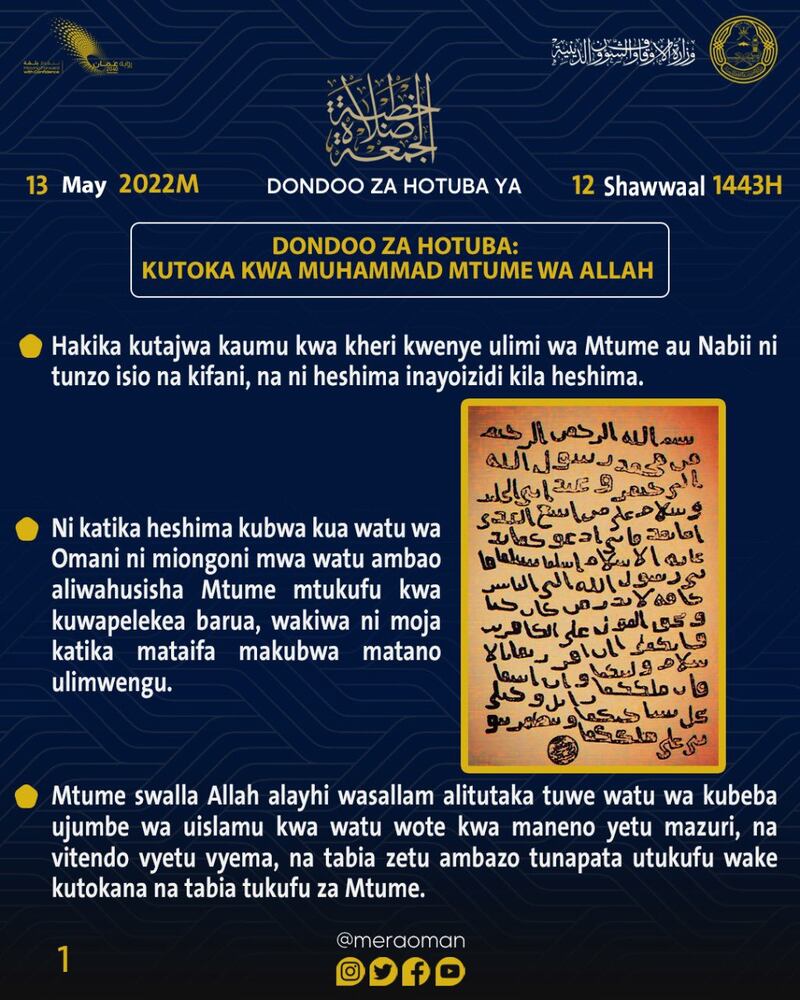 نتقدم بثقة
Moving Forward
with Confidence
رؤية عُمان
2040
وزارة الأوقاف والشؤون الدينية
خطبة
صلاة
الجمعة
13 May 2022M
DONDOO ZA HOTUBA YA
12 Shawwaal 1443H
DONDOO ZA HOTUBA:
KUTOKA KWA MUHAMMAD MTUME WA ALLAH
Hakika kutajwa kaumu kwa kheri kwenye ulimi wa Mtume au Nabii ni
tunzo isio na kifani, na ni heshima inayoizidi kila heshima.
Ni katika heshima kubwa kua watu wa
Omani ni miongoni mwa watu ambao
aliwahusisha Mtume mtukufu kwa
kuwapelekea barua, wakiwa ni moja
katika mataifa makubwa matano
ulimwengu.
بسم الله الرحمن الرحيم
من محمد رسول الله
Mtume swalla Allah alayhi wasallam alitutaka tuwe watu wa kubeba
ujumbe wa uislamu kwa watu wote kwa maneno yetu mazuri, na
vitendo vyetu vyema, na tabia zetu ambazo tunapata utukufu wake
kutokana na tabia tukufu za Mtume.
1
@meraoman